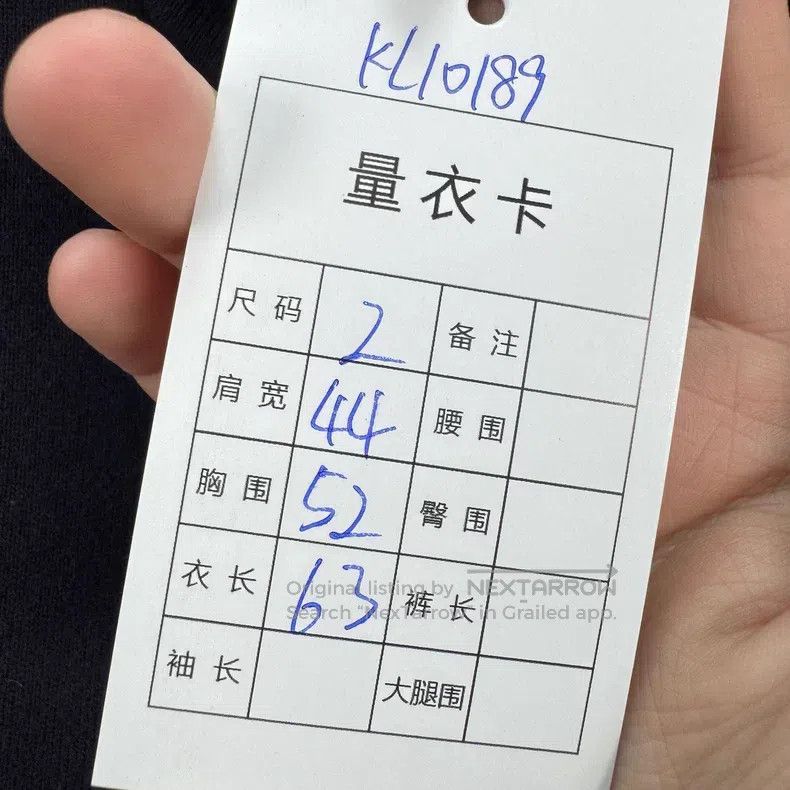 KL10189
量衣卡
尺码 2 备注
肩宽 44 腰围
胸围 52 臀围
衣长 63 裤长
Original listing by NEXTARROW
Search “NexTarrow” in Grailed app.
袖长 大腿围